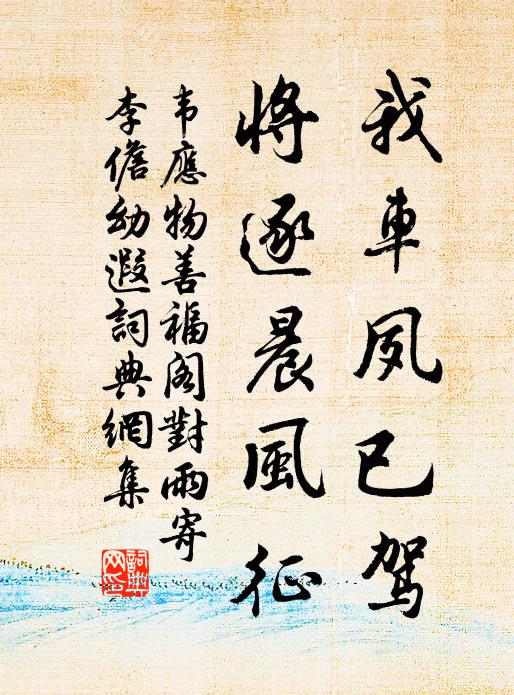 我車夙已駕
將逐晨風征
韦應物善福阁對雨寄
李儋幼遐詞典網集